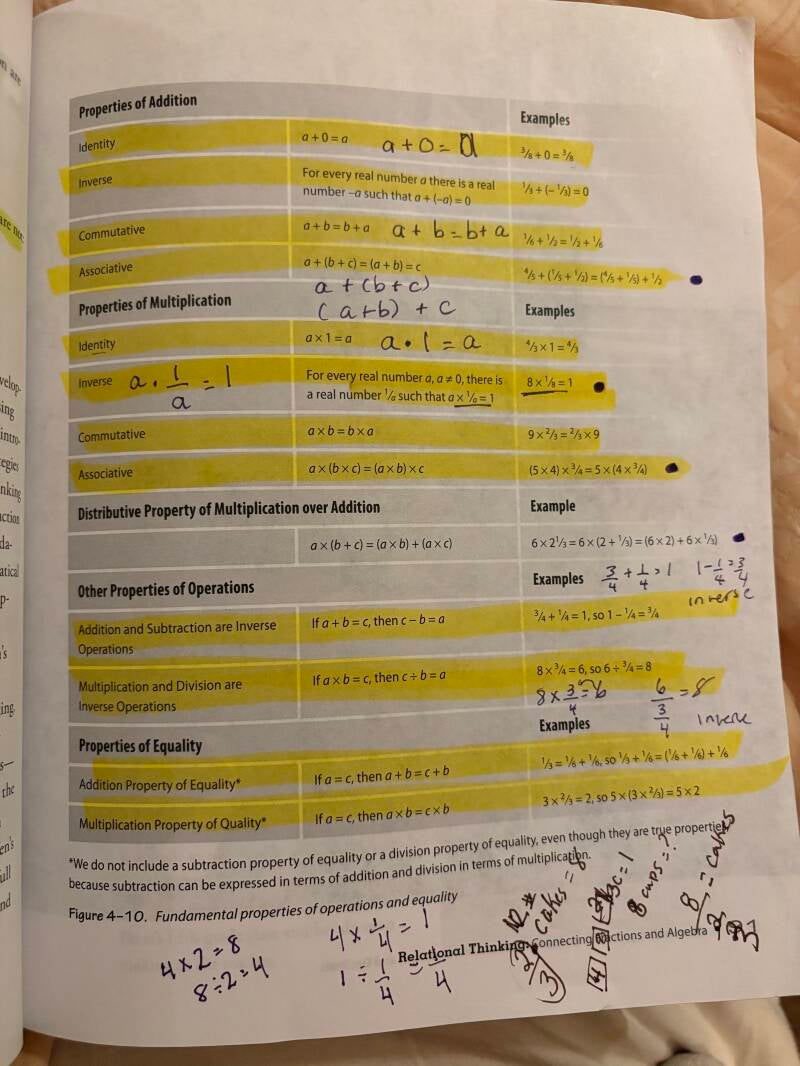 Properties of Addition
Examples
Identity a + 0 = a a + 0 = a ³/₈ + 0 = ³/₈
Inverse For every real number a there is a real
number –a such that a + (–a) = 0 ¹/₃ + (– ¹/₃) = 0
Commutative a + b = b + a a + b = b + a ¹/₆ + ¹/₂ = ¹/₂ + ¹/₆
Associative a + (b + c) = (a + b) = c ⁴/₅ + (¹/₅ + ¹/₂) = (⁴/₅ + ¹/₅) + ¹/₂
a + (b + c)
(a+b) + c
Properties of Multiplication Examples
Identity a × 1 = a a · 1 = a ⁴/₃ × 1 = ⁴/₃
Inverse a · 1/a = 1 For every real number a, a ≠ 0, there is
a real number ¹/a such that a × ¹/a = 1 8 × ¹/₈ = 1
Commutative a × b = b × a 9 × ²/₃ = ²/₃ × 9
Associative a × (b × c) = (a × b) × c (5 × 4) × ³/₄ = 5 × (4 × ³/₄)
Distributive Property of Multiplication over Addition Example
a × (b + c) = (a × b) + (a × c) 6 × 2¹/₃ = 6 × (2 + ¹/₃) = (6 × 2) + 6 × ¹/₃)
Other Properties of Operations Examples 3/4 + 1/4 = 1 1 - 1/4 = 3/4
inverse
Addition and Subtraction are Inverse
Operations If a + b = c, then c – b = a ³/₄ + ¹/₄ = 1, so 1 – ¹/₄ = ³/₄
Multiplication and Division are
Inverse Operations If a × b = c, then c ÷ b = a 8 × ³/₄ = 6, so 6 ÷ ³/₄ = 8
8 × 3/4 = 6 6/(3/4) = 8
inverse
Properties of Equality Examples
Addition Property of Equality* If a = c, then a + b = c + b ¹/₃ = ¹/₆ + ¹/₆, so ¹/₃ + ¹/₆ = (¹/₆ + ¹/₆) + ¹/₆
Multiplication Property of Quality* If a = c, then a × b = c × b 3 × ²/₃ = 2, so 5 × (3 × ²/₃) = 5 × 2
*We do not include a subtraction property of equality or a division property of equality, even though they are true
because subtraction can be expressed in terms of addition and division in terms of multiplication.
Figure 4–10. Fundamental properties of operations and equality
4 × 2 = 8
8 ÷ 2 = 4
4 × 1/4 = 1
1 ÷ 1/4
Relational Thinking: Connecting Fractions and Algebra
cakes = 8
8 cups = ?
= cakes
are not